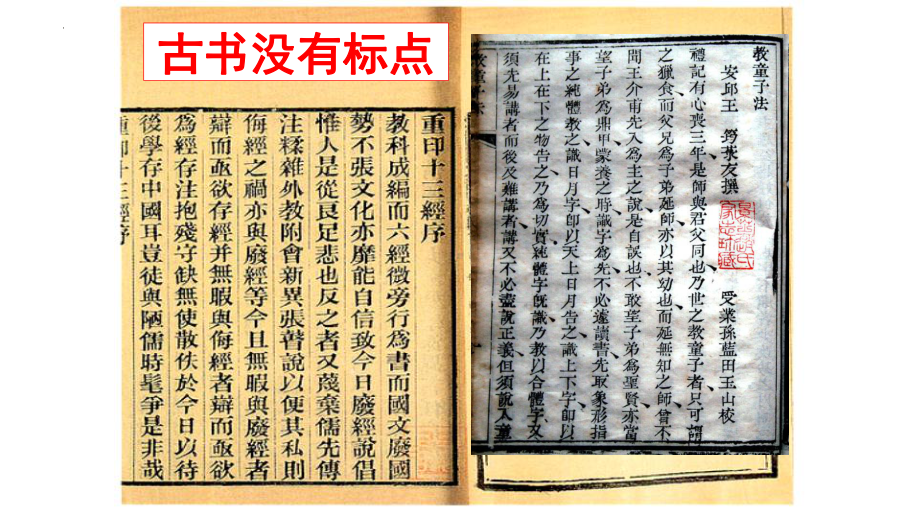 古书没有标点
教童子法
安邱王 友撰
禮記有心喪三年是師與君父同也乃世之教童子者只可謂
之獵食而父兄爲子弟延師亦以其幼也而延無知之師曾不
聞王介甫先入爲主之說是自誤也不敢望子弟爲聖賢亦當
望子弟爲鼎甲蒙養之時識字爲先不必遽讀書先取象形指
事之純體教之識日月字即以天上日月告之識上下字即以
在上在下之物告之乃爲切實純體字既識乃教以合體字又
須先易講者而後及難講者講又不必盡說正義但須說入童
受業孫藍田玉山校
重印十三經序
教科成編而六經微旁行爲書而國文廢國
勢不張文化亦靡能自信致今日廢經說倡
惟人是從良足悲也反之者又蔑棄儒先傳
注糅雜外教附會新異張著說以便其私則
侮經之禍亦與廢經等今且無暇與廢經者
辯而亟欲存經并無暇與侮經者辯而亟欲
爲經存注抱殘守缺無使散佚於今日以待
後學存中國耳豈徒與陋儒時髦爭是非哉
重印十三經序